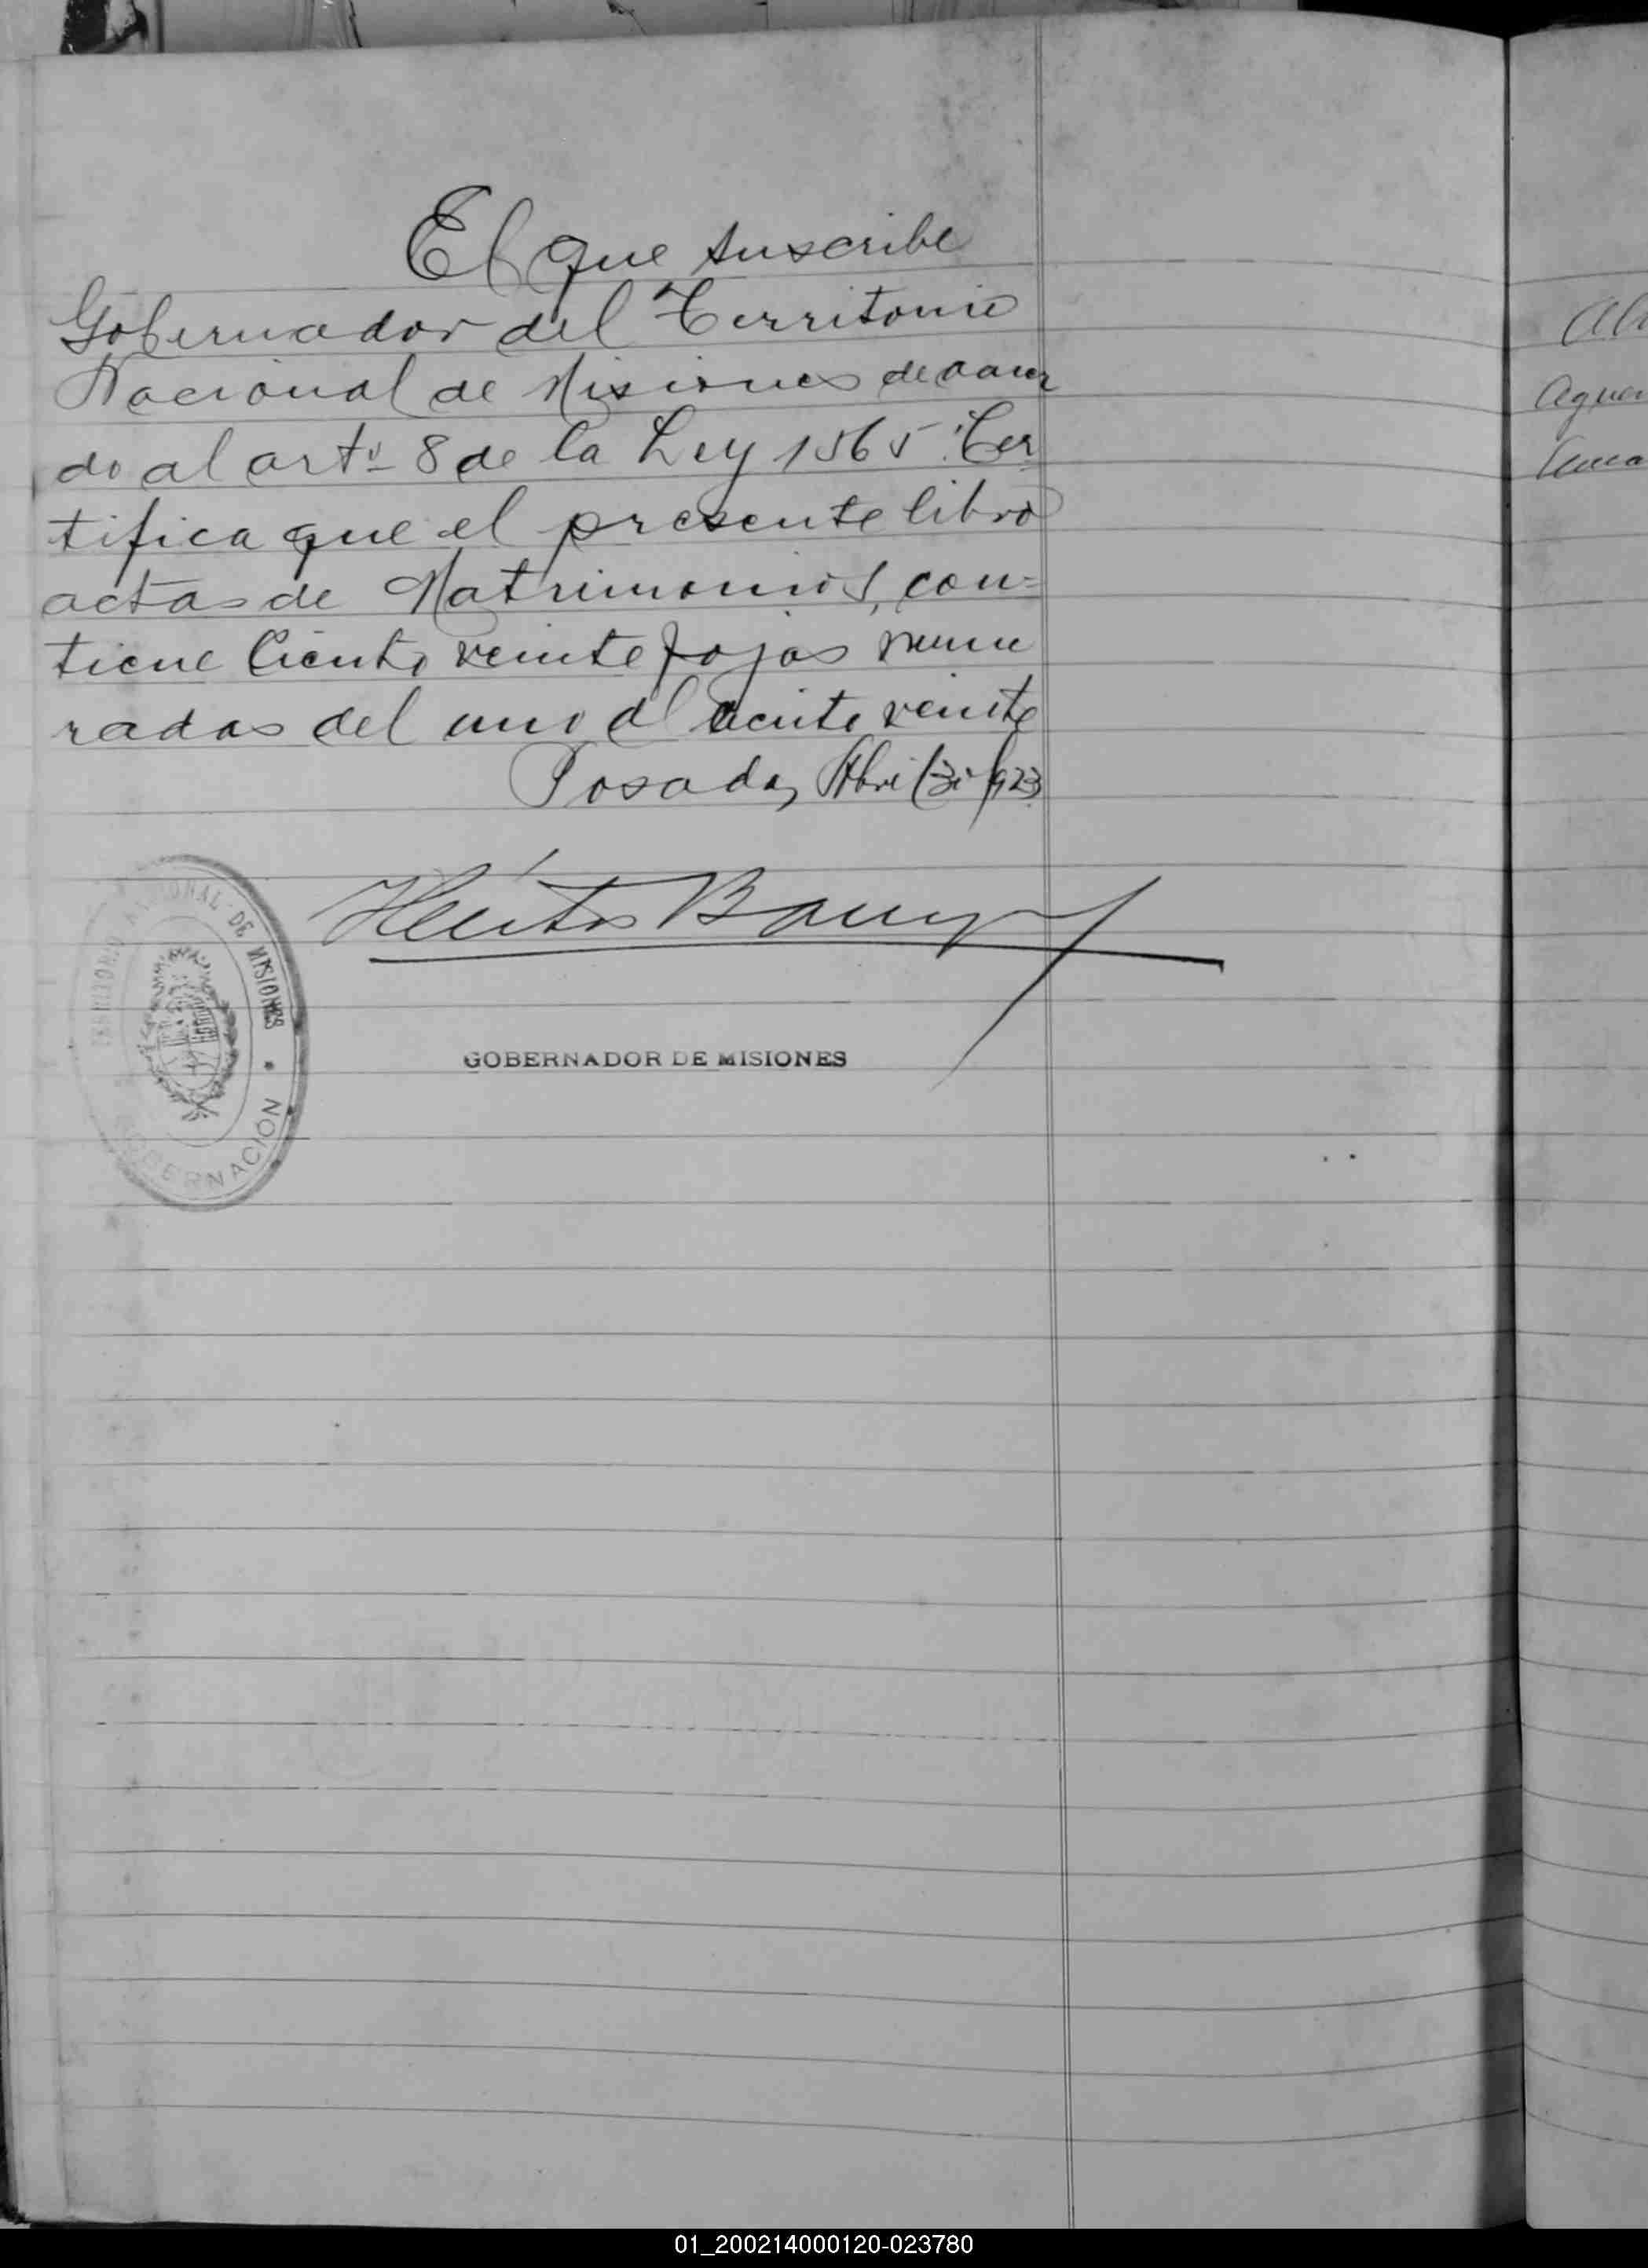 El que suscribe
Gobernador del Territorio
Nacional de Misiones de acuer
do al artº 8 de la Ley 1565 Cer
tifica que el presente libro
actas de Matrimonios, con=
tiene Ciento veinte fojas nume
radas del uno al ciento veinte
Posadas, Abril 30/923
Héctor Barreyro
TERRITORIO NACIONAL DE MISIONES
GOBERNACIÓN
GOBERNADOR DE MISIONES
01_200214000120-023780